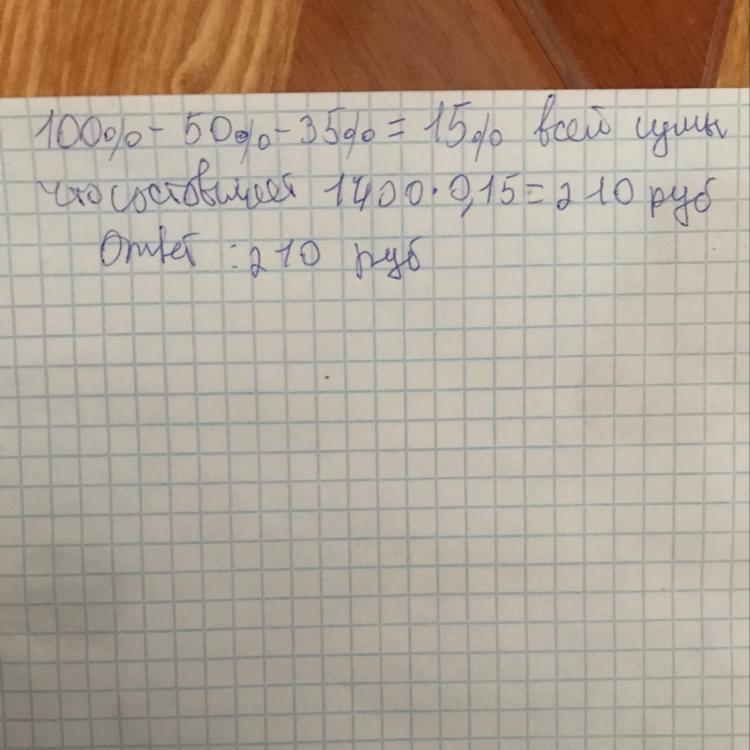 100% - 50% - 35% = 15% всей сумы
что составляет 1400 · 0,15 = 210 руб
Ответ : 210 руб